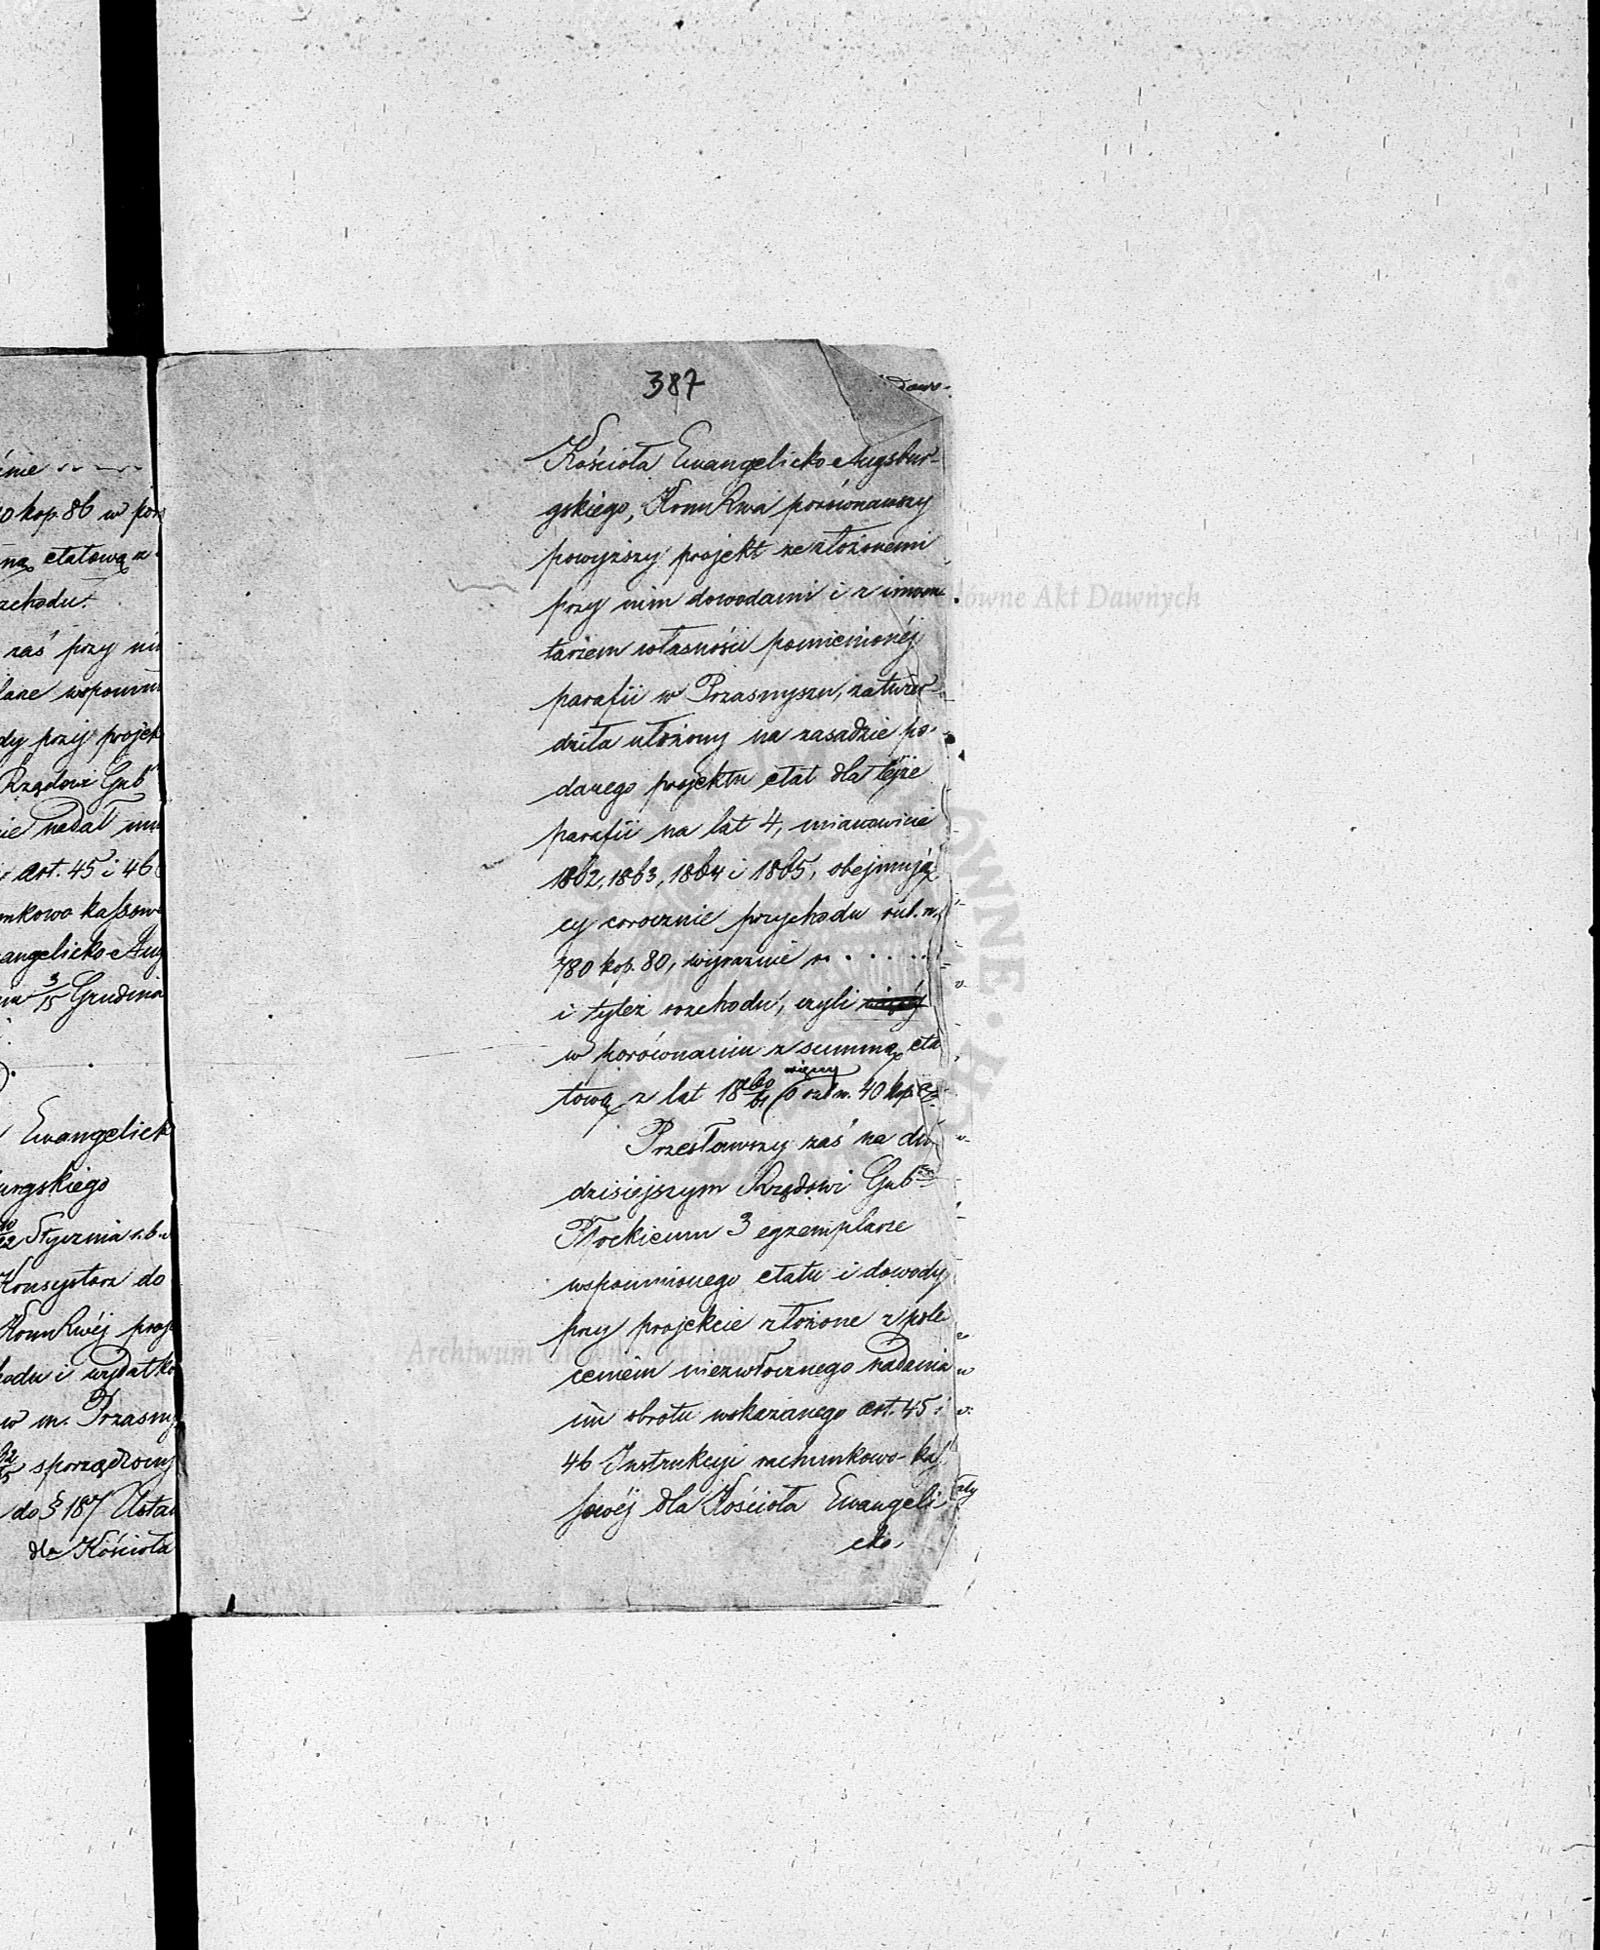 śnie
0 kop. 86 w por
ną etatową z
zchodu.
zaś przy ni
łane wspomn
dy przy projek
Rządowi Gub
ie nadał im
art. 45 i 46
nkowo kassow
angelicko-Aug
3/15 Grudnia
Ewangelick
urgskiego
10/22 Stycznia r. b.
Konsystorz do
KommRwéj proj
hodu i wydatko
w m. Przasny
62/65 sporządzony
do § 187 Ustaw
dla Kościoła
387
Kościoła Ewangelicko-Augsbur-
gskiego, KommRwa porównawszy
powyższy projekt ze złożonemi
przy nim dowodami i z inwen
tarzem własności pomienionéj
parafii w Przasnyszu, zatwier-
dziła ułożony na zasadzie po-
danego projektu etat dla téjże
parafii na lat 4, mianowicie
1862, 1863, 1864 i 1865, obejmują
cy corocznie przychodu rub. sr.
780 kop. 80, wyraźnie r. . . . . .
i tyleż rozchodu, czyli
w porównaniu z summą eta
tową z lat 1860/61 więcéj o rub. sr. 40 kop.
Przesławszy zaś na dniu
dzisiejszym Rządowi Gub
Płockiemu 3 egzemplarze
wspomnionego etatu i dowody
przy projekcie złożone z pole
ceniem niezwłocznego nadania
im obrotu wskazanego art. 45 i
46 Instrukcyi rachunkowo-kas
sowéj dla Kościoła Ewangeli
cko-
Archiwum Główne Akt Dawnych
Archiwum Główne Akt Dawnych